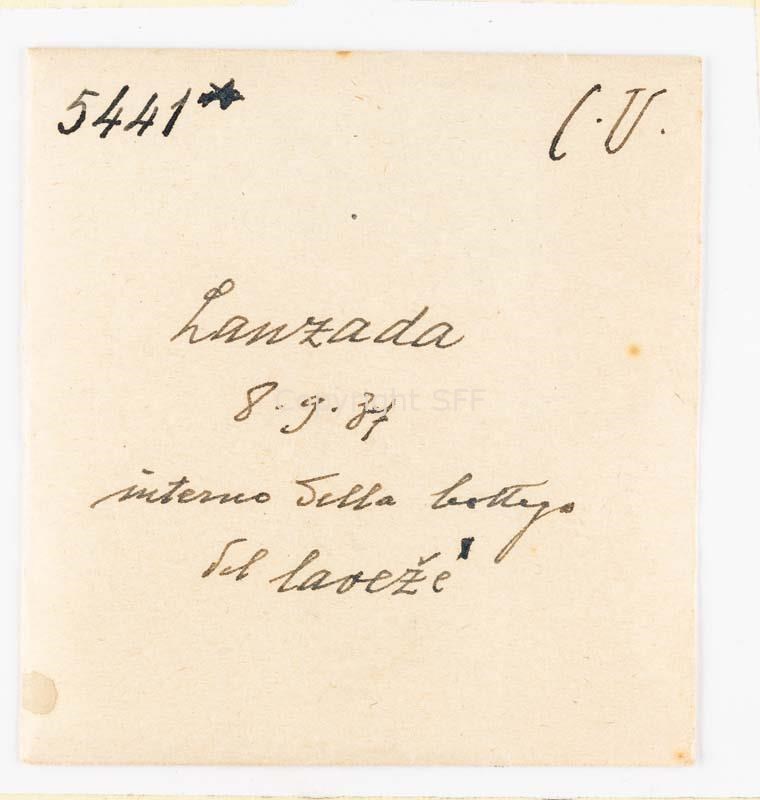 5441* C.U.
Lanzada
8.9.37
Copyright SFF
interno della bottega
del lavežé